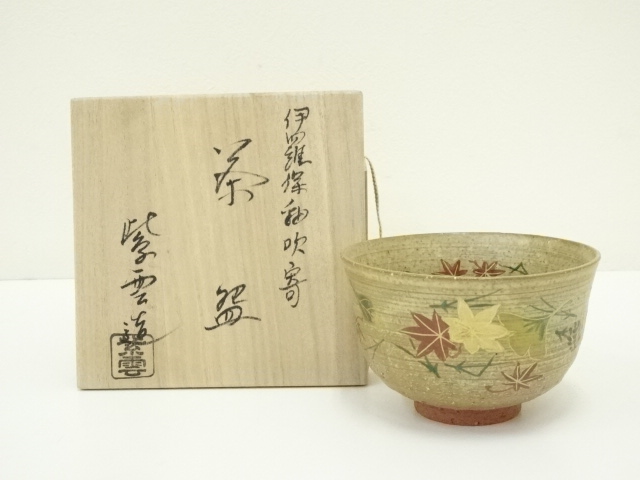 伊羅保釉吹寄
茶盌
紫雲造
紫雲